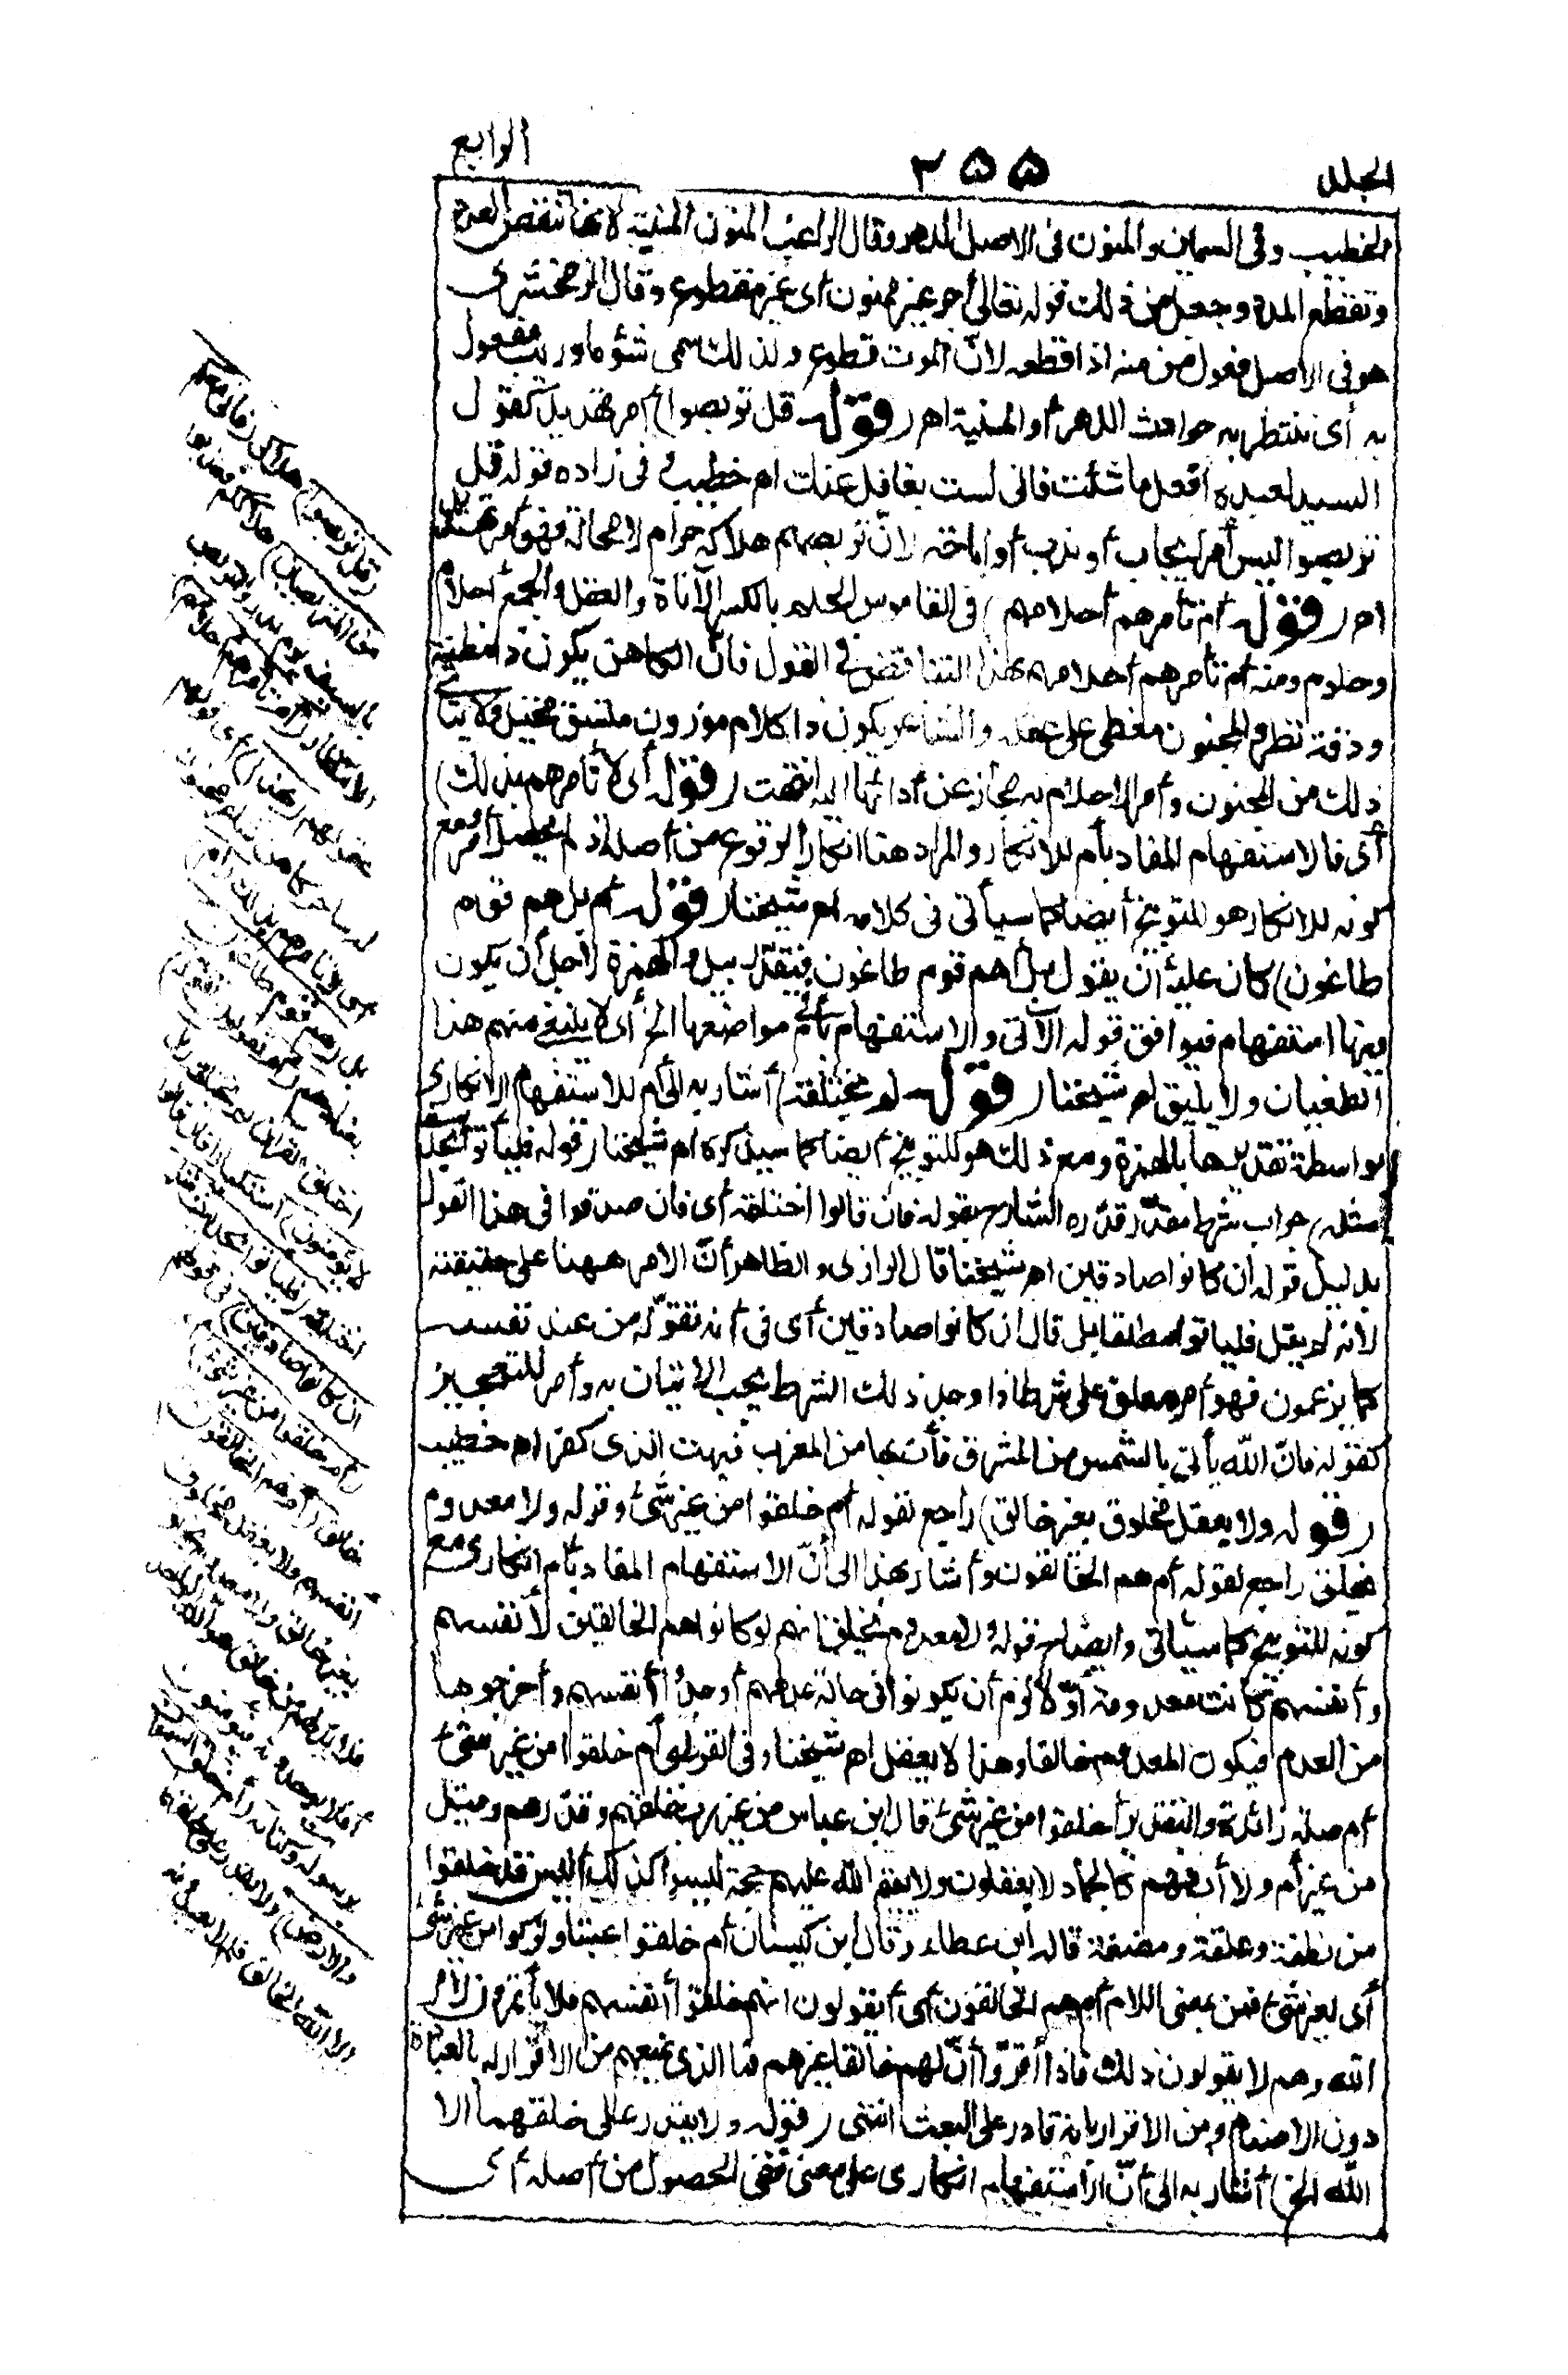 الجلد
٢٥٥
الرابع
الخطيب وفي السمين والمنون في الاصل الدهر وقال الراغب المنون المنية لانها تنقص العدد
وتقطع المدة وجعل من ذلك قوله تعالى أجر غير ممنون أى غير مقطوع وقال الزمخشرى
هو فى الاصل فعول من منه اذا قطعه لانّ الموت قطوع ولذلك سمى شئوما وريب مفعول
به أى ننتظر به حوادث الدهر أو المنية اهـ (قوله قل تربصوا) أمر تهديد كقول
السيد لعبده افعل ما شئت فانى لست بغافل عنك اه خطيب وفى زاده قوله قل
تربصوا ليس أمر ايجاب أو ندب أو اباحة لانّ تربصهم هلاكه حرام لا محالة فهو أمر تهديد
اهـ (قوله أم تأمرهم أحلامهم) فى القاموس الحلم بالكسر الأناة والعقل والجمع أحلام
وحلوم ومنه أم تأمرهم أحلامهم بهذا التناقض في القول فانّ الكاهن يكون ذا فطنة
ودقة نظر والمجنون مغطى على عقله والشاعر يكون ذا كلام موزون متسق مخيل ولا يتأتى
ذلك من المجنون وأمر الاحلام به مجاز عن أدائها اليه انتهت (قوله أى لا تأمرهم بذلك)
أى فالاستفهام المفاد بأم للانكار والمراد هنا انكار الوقوع من أصله اذ لم يحصل أمر ومع
كونه للانكار هو للتوبيخ أيضا كما سيأتى فى كلامه اهـ شيخنا (قوله أم بل هم قوم
طاغون) كان عليه ان يقول بل أهم قوم طاغون فيقدر ببل والهمزة لاجل أن يكون
فيها استفهام فيوافق قوله الآتى والاستفهام بأم في مواضعها الخ أى لا ينبغى منهم هذا
الطغيان ولا يليق اهـ شيخنا (قوله لم يختلقه) أشار به الى أم للاستفهام الانكارى
بواسطة تقديرها بالهمزة ومع ذلك هو للتوبيخ أيضا كما سيذكره اهـ شيخنا (قوله فليأتوا بحديث
مثله) جواب شرط مقدّر قدّره الشارح بقوله فان قالوا اختلقه أى فان صدقوا فى هذا القول
بدليل قوله ان كانوا صادقين اهـ شيخنا قال الرازى والظاهر أنّ الامر ههنا على حقيقته
لانه لم يقل فليأتوا مطلقا بل قال ان كانوا صادقين أى فى أنه تقوّله من عند نفسه
كما يزعمون فهو أمر معلق على شرط اذا وجد ذلك الشرط يجب الاتيان به وأمر للتعجيز
كقوله فانّ الله يأتى بالشمس من المشرق فأت بها من المغرب فبهت الذى كفر اهـ خطيب
(قوله ولا يعقل مخلوق بغير خالق) راجع لقوله أم خلقوا من غير شئ وقوله ولا معدوم
يخلق راجع لقوله أم هم الخالقون وأشار بهذا الى أنّ الاستفهام المفاد بأم انكارى مع
كونه للتوبيخ كما سيأتى وايضاح قوله ولا معدوم يخلق انهم لو كانوا هم الخالقين لأنفسهم
وأنفسهم كانت معدومة أوّلا لزم أن يكونوا فى حالة عدمهم أوجدوا أنفسهم وأخرجوها
من العدم فيكون المعدوم خالقا وهذا لا يعقل اهـ شيخنا وفى القرطبى أم خلقوا من غير شئ
أم صلة زائدة والتقدير أخلقوا من غير شئ قال ابن عباس من غير رب خلقهم وقدّرهم وقيل
من غير أم ولا أب فهم كالجماد لا يعقلون ولا يقم الله عليهم حجة ليسوا كذلك أليس قد خلقوا
من نطفة وعلقة ومضغة قاله ابن عطاء وقال ابن كيسان أم خلقوا عبثا وتركوا من غير شئ
أى لغير شئ فمن بمعنى اللام أم هم الخالقون أى أيقولون انهم خلقوا أنفسهم فلا يأتمرون لأمر
الله وهم لا يقولون ذلك فاذا أقرّوا أنّ لهم خالقا غيرهم فما الذى يمنعهم من الاقرار له بالعبادة
دون الاصنام ومن الاقرار بانه قادر على البعث انتهى (قوله ولا يقدر على خلقهما الا
الله الخ) أشار به الى أنّ الاستفهام انكارى على معنى نفى الحصول من أصله أى
(قل تربصوا) هلاكى (فانى معكم
من المتربصين) هلاككم فعذبوا
بالسيف يوم بدر والتربص
الانتظار (أم تأمرهم أحلامهم)
عقولهم (بهذا) أى قولهم
له ساحر كاهن شاعر مجنون
أى لا تأمرهم بذلك (أم)
بل (هم قوم طاغون)
بعنادهم (أم يقولون تقوّله)
اختلق القرآن لم يختلقه (بل
لا يؤمنون) استكبارا فان قالوا
اختلقه (فليأتوا بحديث مثله
ان كانوا صادقين) فى قولهم
(أم خلقوا من غير شئ)
خالق (أم هم الخالقون)
أنفسهم ولا يعقل مخلوق
بغير خالق ولا معدوم يخلق
فلا بدّ لهم من خالق هو الله الواحد
أفلا يوحدونه ويؤمنون
برسوله وكتابه (أم خلقوا السموات
والارض) ولا يقدر على خلقهما
الا الله الخالق فلم لا يعبدونه